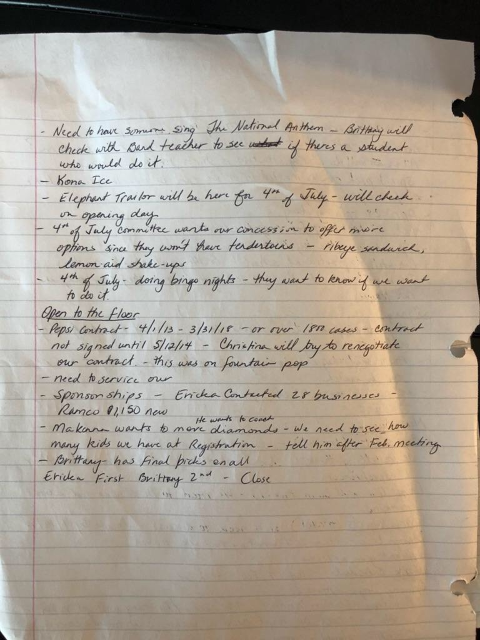 - Need to have someone sing The National Anthem - Brittany will
check with Band teacher to see if there's a student
who would do it.
- Kona Ice
- Elephant Trailor will be here for 4th of July - will check
on opening day
- 4th of July committee wants our concession to offer more
options since they won't have tenderloins - ribeye sandwich,
lemon aid shake-ups
- 4th of July - doing bingo nights - they want to know if we want
to do it
Open to the Floor
- Pepsi Contract - 4/1/13 - 3/31/18 - or over 1800 cases - contract
not signed until 5/12/14 - Christina will try to renegotiate
our contract - this was on fountain pop
- need to service our
- Sponsorships - Ericka Contacted 28 businesses -
Ramco $1,150 new
He wants to coach
- Makenna wants to move diamonds - we need to see how
many kids we have at Registration - tell him after Feb. meeting
- Brittany - has final picks on all
Ericka First Brittany 2nd - Close